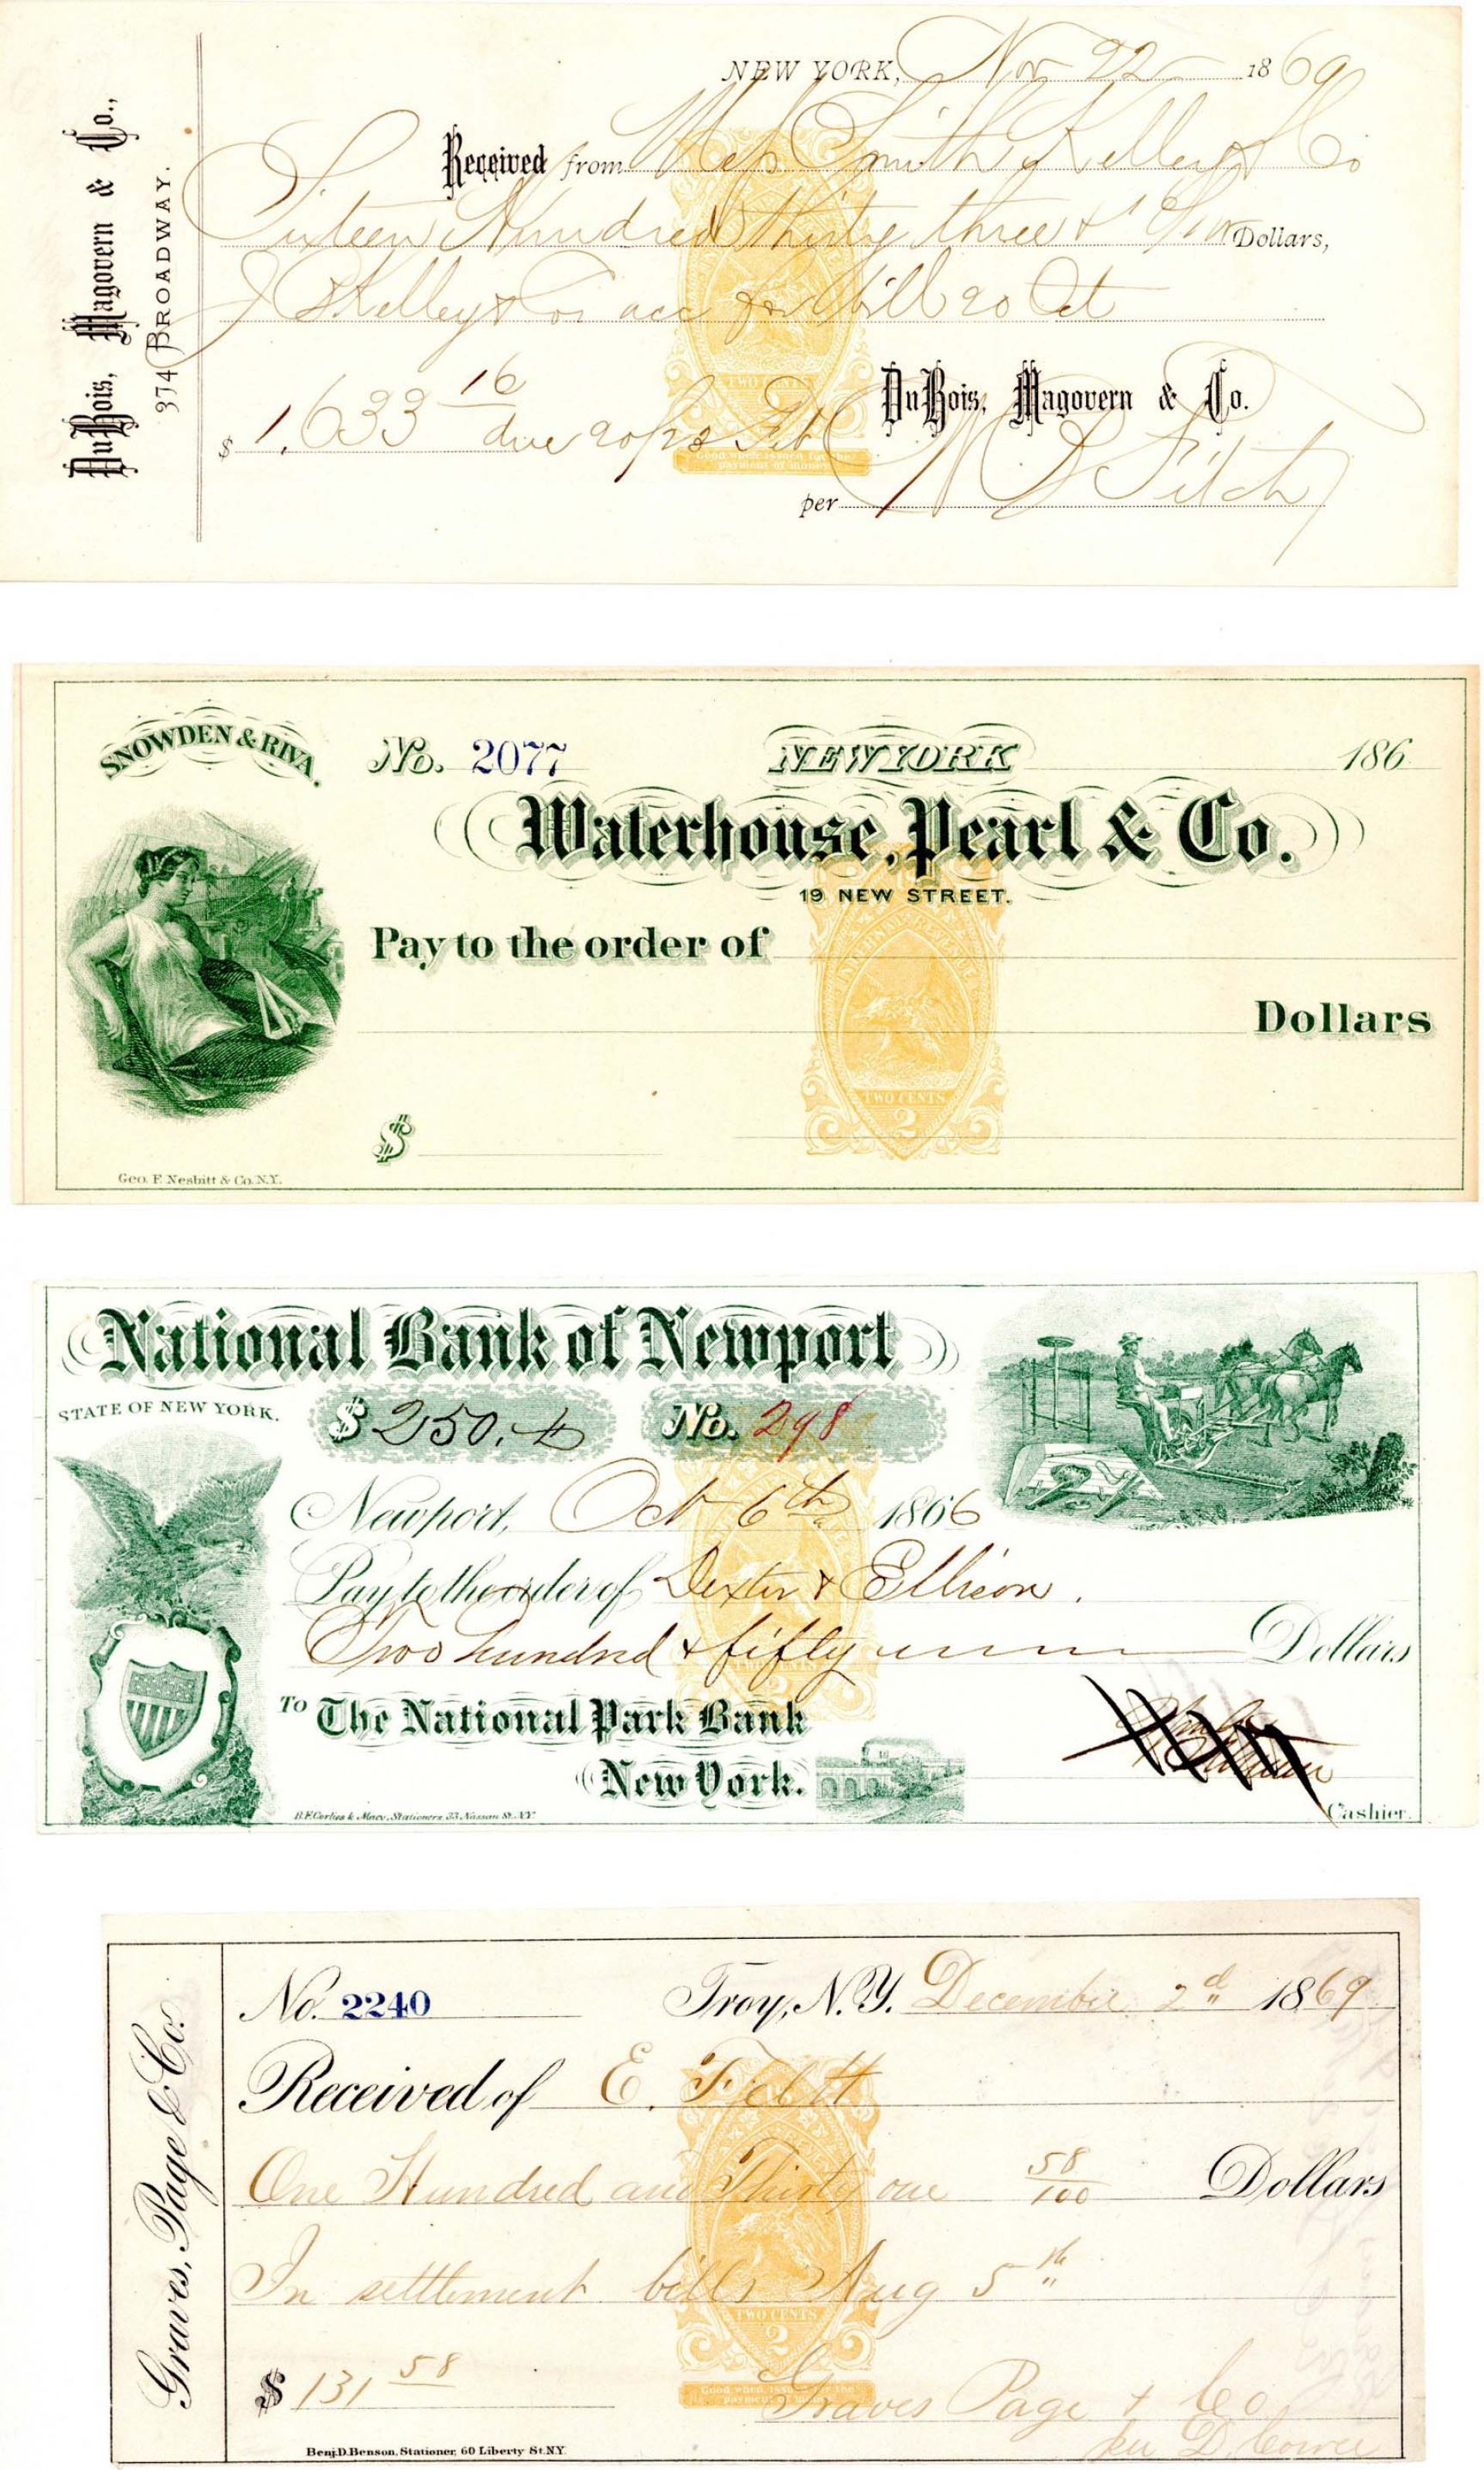 DuBois, Magovern & Co.,
374 BROADWAY.
NEW YORK, Nov 22 1869
Received from Mess Smith Kelley & Co
Sixteen Hundred thirty three & 16/100 Dollars,
Kelley & Co acc for bill 20 Oct
$ 1,633 16 due
DuBois, Magovern & Co.
per Fitch
TWO CENTS
Good when issued for the
payment of money
SNOWDEN & RIVA.
No. 2077 NEW YORK 186
Waterhouse, Pearl & Co.
19 NEW STREET.
Pay to the order of
Dollars
INTERNAL REVENUE
TWO CENTS
2
$
Geo. F. Nesbitt & Co. N.Y.
National Bank of Newport
STATE OF NEW YORK.
$ 250. No. 298
Newport, Oct 6th 1866
Pay to the order of Dexter & Ellison.
Two hundred & fifty Dollars
To The National Park Bank
New York.
B.F. Corlies & Macy, Stationers, 33 Nassau St. N.Y.
Cashier.
Graves, Page & Co.
No. 2240 Troy, N.Y. December 2d 1869
Received of E. Feltt
One Hundred and Thirty one 58/100 Dollars
In settlement bills Aug 5th
TWO CENTS
2
$ 131 58
Good when issued for the
payment of money
Graves Page & Co
per D
Benj. D. Benson, Stationer, 60 Liberty St. N.Y.